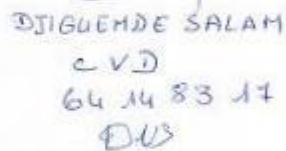 DJIGUEMDE SALAM
CVD
64 14 83 17